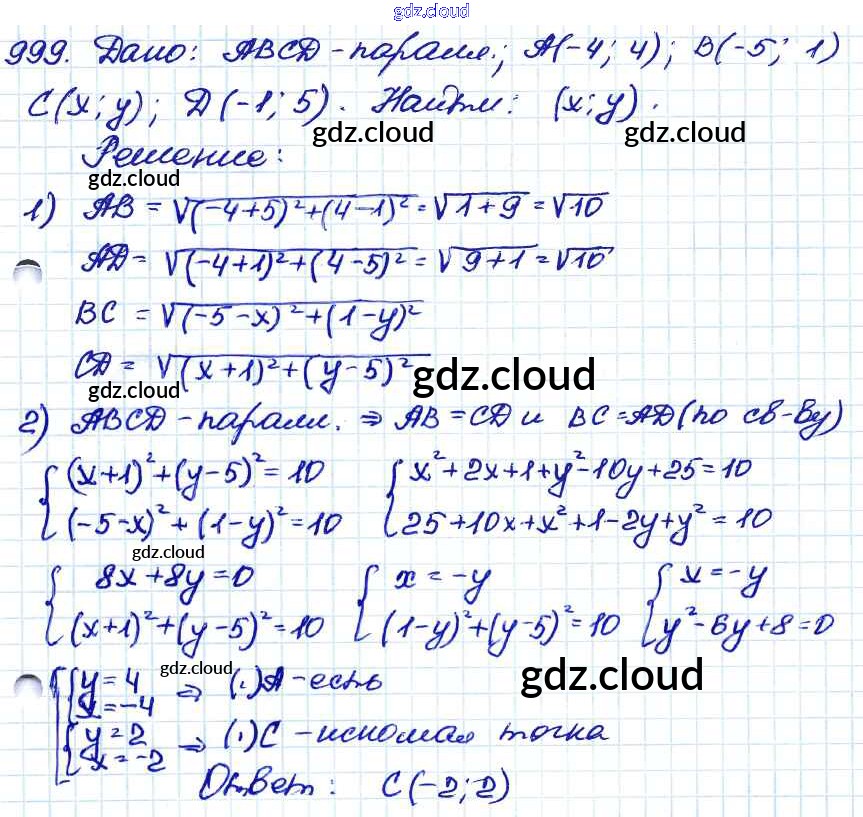 gdz.cloud
999. Дано: ABCD - паралл.; A(-4; 4); B(-5; 1)
C(x; y); D(-1; 5). Найти: (x; y).
gdz.cloud gdz.cloud
Решение:
gdz.cloud
1) AB = √(-4+5)²+(4-1)² = √1+9 = √10
AD = √(-4+1)²+(4-5)² = √9+1 = √10
BC = √(-5-x)²+(1-y)²
CD = √(x+1)²+(y-5)² gdz.cloud
gdz.cloud
2) ABCD - паралл. ⇒ AB = CD и BC = AD (по св-ву)
{(x+1)²+(y-5)²=10 {x²+2x+1+y²-10y+25=10
(-5-x)²+(1-y)²=10 25+10x+x²+1-2y+y²=10
gdz.cloud
{8x+8y=0 {x=-y {x=-y
(x+1)²+(y-5)²=10 (1-y)²+(y-5)²=10 y²-6y+8=0
gdz.cloud gdz.cloud
[{y=4 ⇒ (.)A - есть
x=-4
{y=2 ⇒ (.)C - искомая точка
x=-2
Ответ: C(-2; 2)